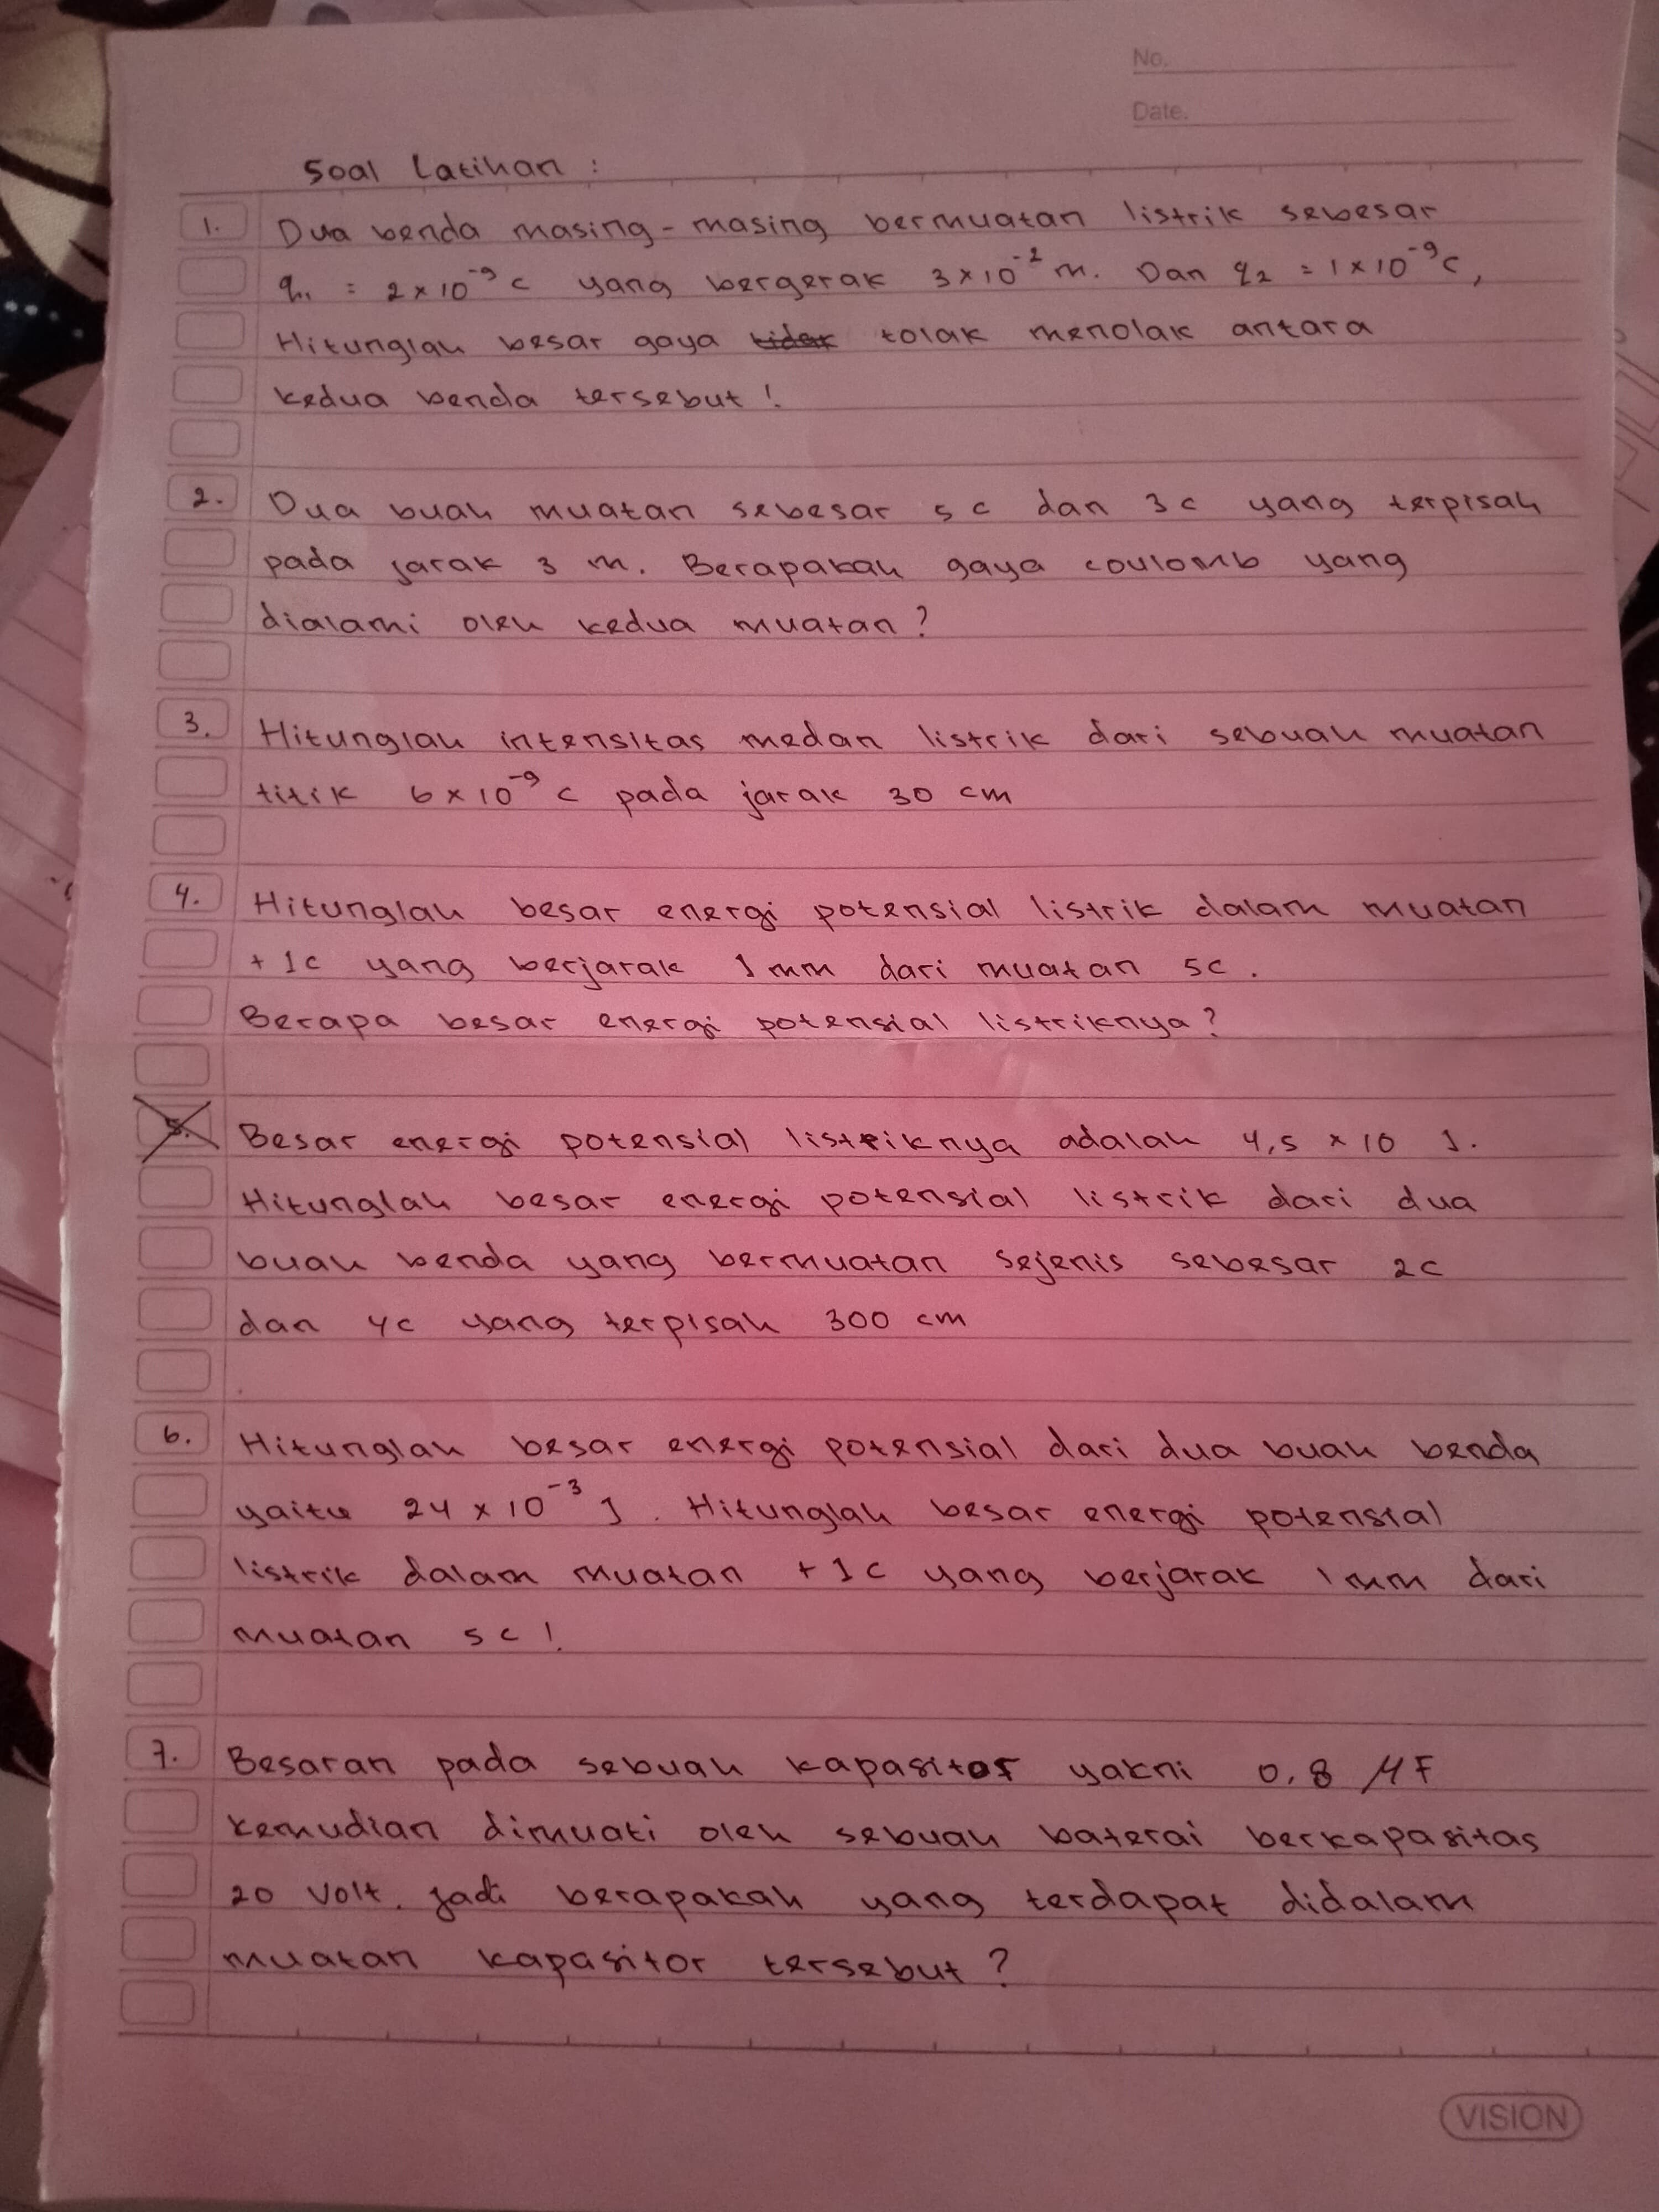 No.
Date.
Soal Latihan :
1. Dua benda masing-masing bermuatan listrik sebesar
q₁ = 2 × 10⁻⁹ C yang bergerak 3 × 10⁻² m. Dan q₂ = 1 × 10⁻⁹ C,
Hitunglah besar gaya tolak menolak antara
kedua benda tersebut !
2. Dua buah muatan sebesar 5 C dan 3 C yang terpisah
pada jarak 3 m. Berapakah gaya coulomb yang
dialami oleh kedua muatan ?
3. Hitunglah intensitas medan listrik dari sebuah muatan
titik 6 × 10⁻⁹ C pada jarak 30 cm
4. Hitunglah besar energi potensial listrik dalam muatan
+ 1C yang berjarak 1 mm dari muatan 5C.
Berapa besar energi potensial listriknya ?
5. Besar energi potensial listriknya adalah 4,5 × 10 J.
Hitunglah besar energi potensial listrik dari dua
buah benda yang bermuatan sejenis sebesar 2C
dan 4C yang terpisah 300 cm
6. Hitunglah besar energi potensial dari dua buah benda
yaitu 24 × 10⁻³ J. Hitunglah besar energi potensial
listrik dalam muatan + 1 C yang berjarak 1 mm dari
muatan 5 C !
7. Besaran pada sebuah kapasitor yakni 0,8 μF
kemudian dimuati oleh sebuah baterai berkapasitas
20 Volt. Jadi berapakah yang terdapat didalam
muatan kapasitor tersebut ?
VISION